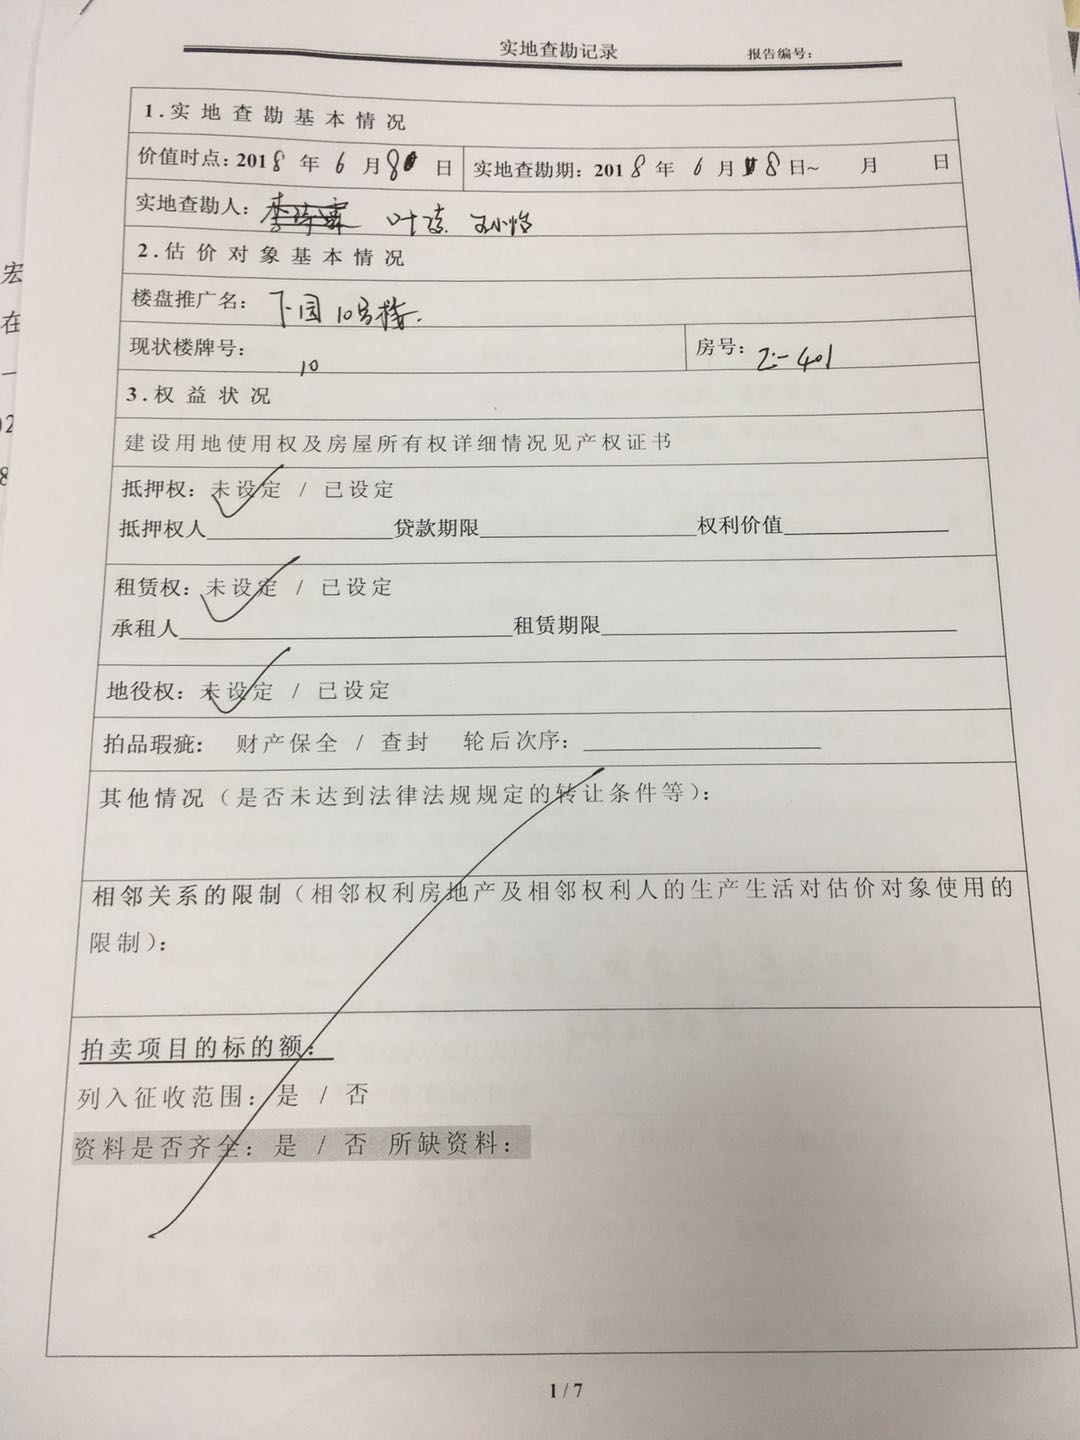 实地查勘记录 报告编号:
1.实地查勘基本情况
价值时点:2018年6月8日 实地查勘期:2018年6月8日~ 月 日
实地查勘人: 叶
2.估价对象基本情况
楼盘推广名: 下园10号楼.
现状楼牌号: 10 房号: 2-401
3.权益状况
建设用地使用权及房屋所有权详细情况见产权证书
抵押权: 未设定 / 已设定
抵押权人 贷款期限 权利价值
租赁权: 未设定 / 已设定
承租人 租赁期限
地役权: 未设定 / 已设定
拍品瑕疵: 财产保全 / 查封 轮后次序:
其他情况(是否未达到法律法规规定的转让条件等):
相邻关系的限制(相邻权利房地产及相邻权利人的生产生活对估价对象使用的
限制):
拍卖项目的标的额:
列入征收范围: 是 / 否
资料是否齐全: 是 / 否 所缺资料:
1 / 7
宏
在
一
02
8